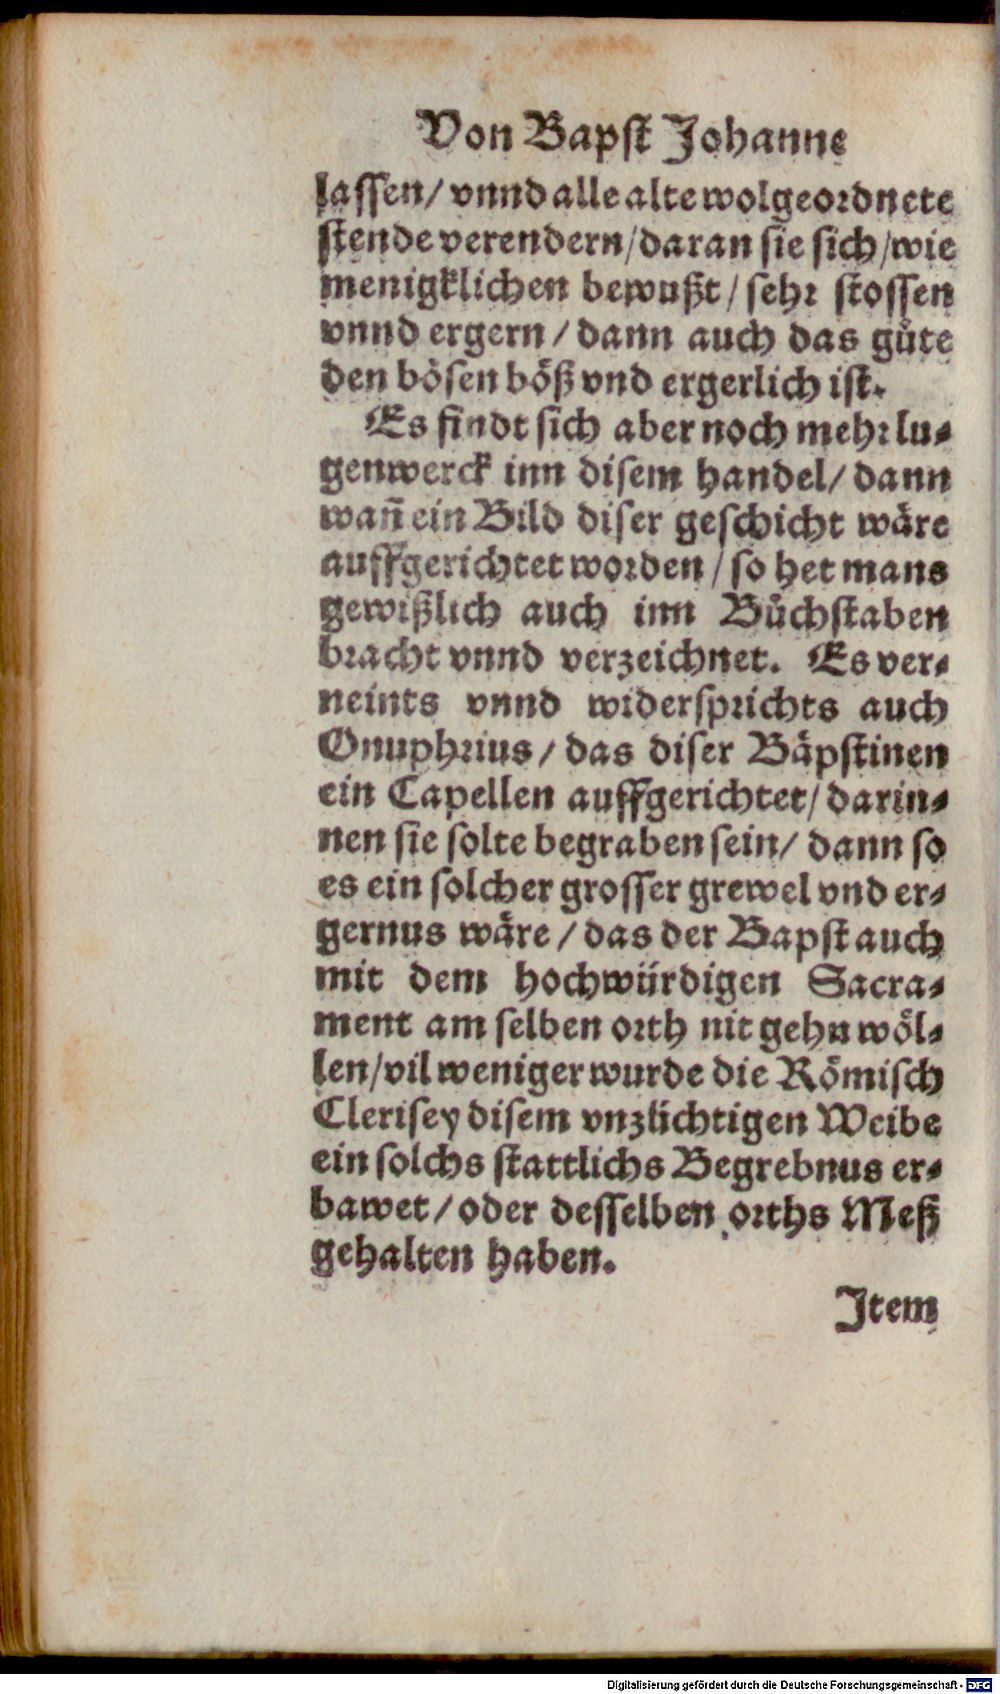 Von Bapst Johanne
lassen/ vnnd alle alte wolgeordnete
stende verendern/ daran sie sich/ wie
menigklichen bewußt/ sehr stossen
vnnd ergern/ dann auch das gůte
den bösen böß vnd ergerlich ist.
Es findt sich aber noch mehr lu⸗
genwerck inn disem handel/ dann
wañ ein Bild diser geschicht wäre
auffgerichtet worden/ so het mans
gewißlich auch inn Bůchstaben
bracht vnnd verzeichnet. Es ver⸗
neints vnnd widersprichts auch
Onuphrius/ das diser Bäpstinen
ein Capellen auffgerichtet/ darin⸗
nen sie solte begraben sein/ dann so
es ein solcher grosser grewel vnd er⸗
gernus wäre/ das der Bapst auch
mit dem hochwürdigen Sacra⸗
ment am selben orth nit gehn wöl⸗
len/ vil weniger wurde die Römisch
Clerisey disem vnzüchtigen Weibe
ein solchs stattlichs Begrebnus er⸗
bawet/ oder desselben orths Meß
gehalten haben.
Item
Digitalisierung gefördert durch die Deutsche Forschungsgemeinschaft - DFG